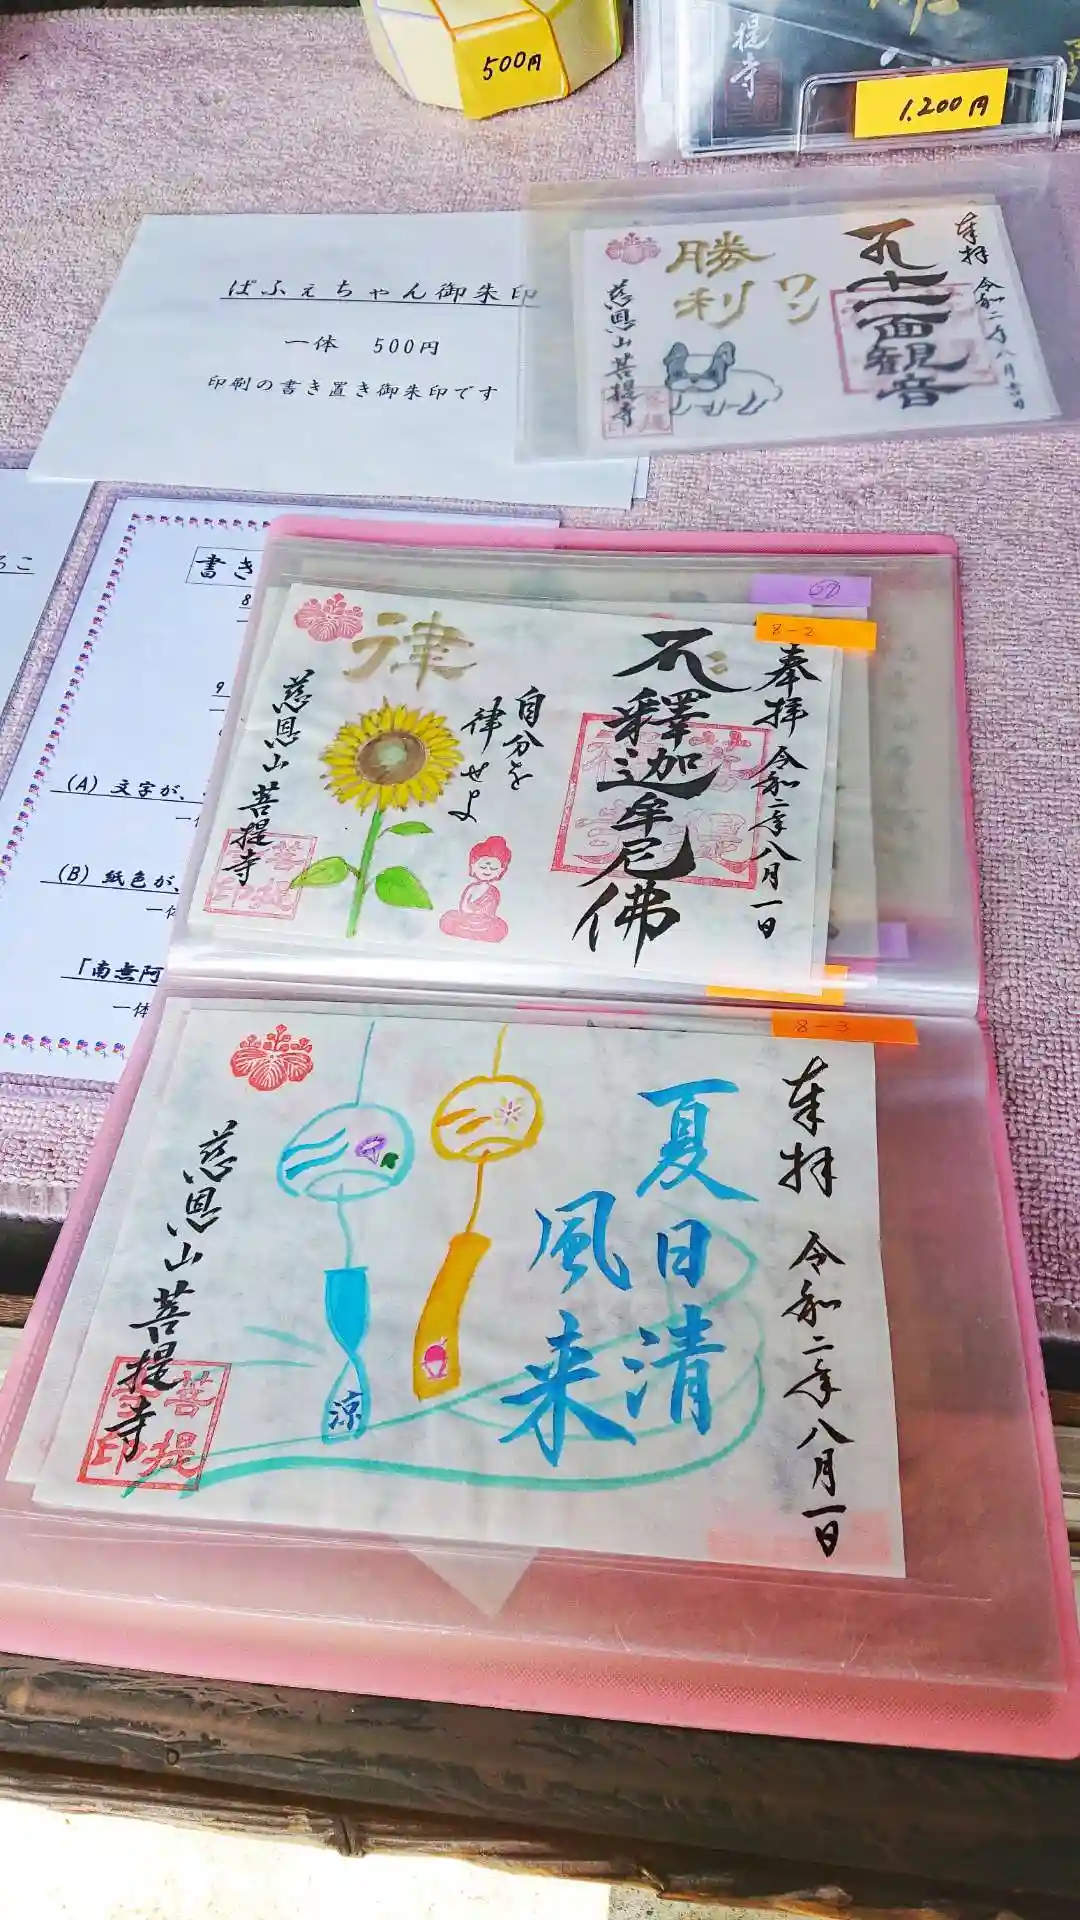 500円
提寺
1,200円
ぱふぇちゃん御朱印
一体 500円
印刷の書き置き御朱印です
奉拝 令和二年八月
十一面観音
ワン
勝利
慈恩山菩提寺
書き
8
9
(A) 文字が、
一
(B) 紙色が、
一体
「南無阿
一体
8-2
奉拝 令和二年八月一日
釋迦牟尼佛
自分を
律せよ
律
慈恩山菩提寺
8-3
奉拝 令和二年八月一日
夏日清
風来
涼
慈恩山菩提寺
菩提
印